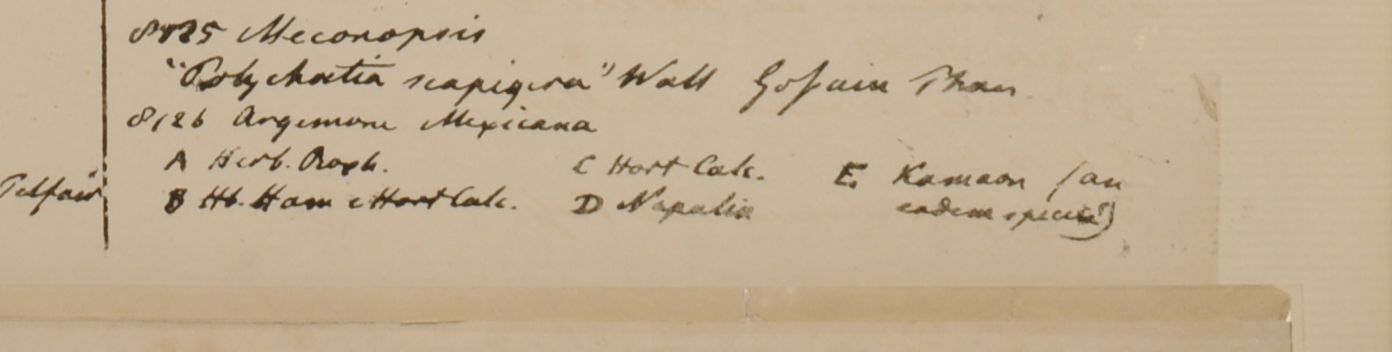 8125 Meconopsis
"Polychaetia scapigera" Wall Gosain Than
8126 Argemone Mexicana
A Herb. Roxb. C Hort Calc. E. Kamaon (an
Telfair B Hb. Ham e Hort Calc. D Napalia eadem species?)